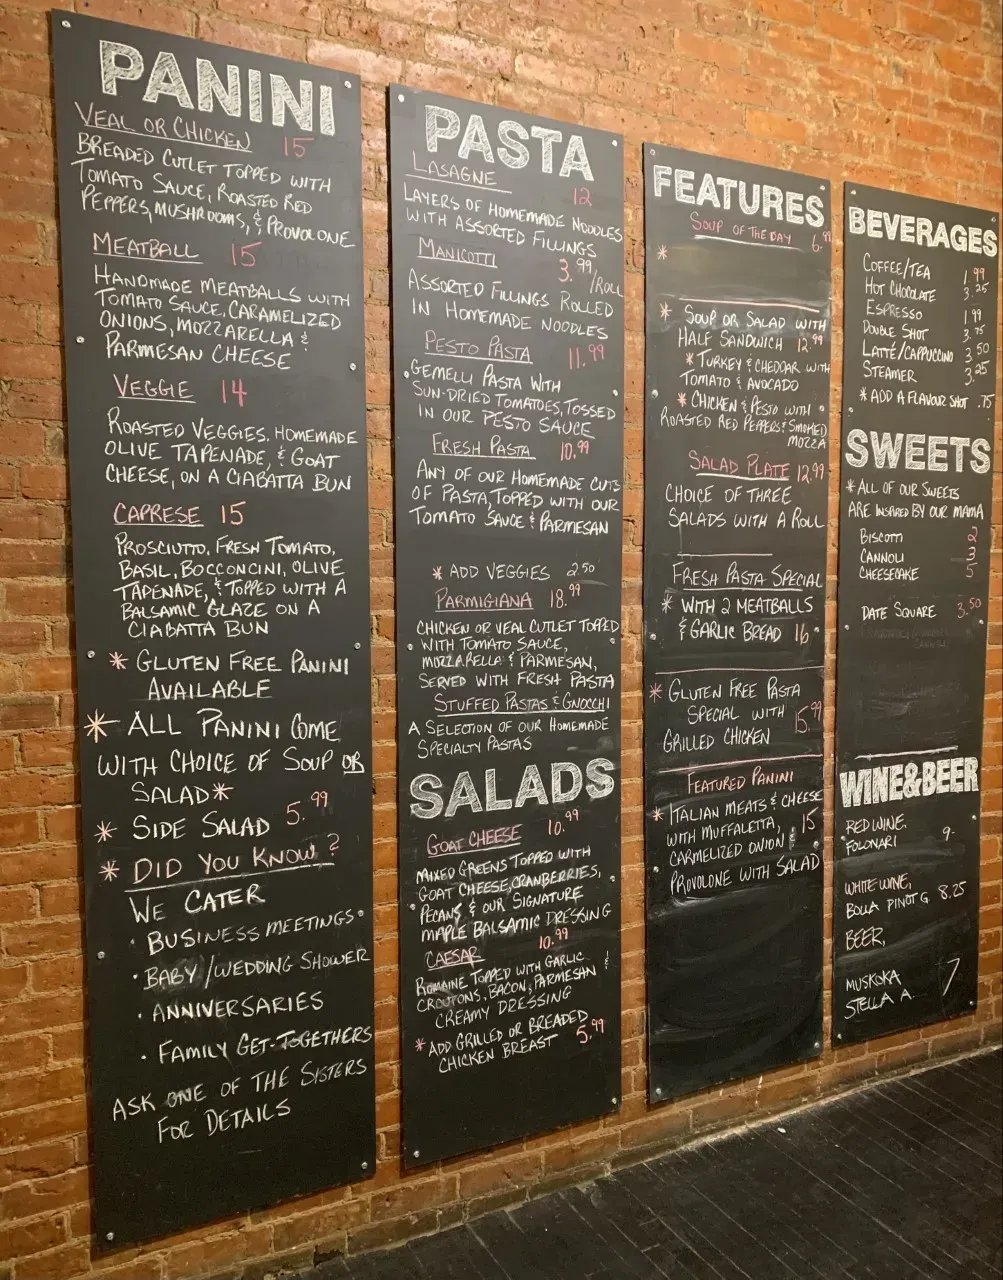 PANINI
VEAL OR CHICKEN 15
BREADED CUTLET TOPPED WITH
TOMATO SAUCE, ROASTED RED
PEPPERS, MUSHROOMS, & PROVOLONE
MEATBALL 15
HANDMADE MEATBALLS WITH
TOMATO SAUCE, CARAMELIZED
ONIONS, MOZZARELLA &
PARMESAN CHEESE
VEGGIE 14
ROASTED VEGGIES, HOMEMADE
OLIVE TAPENADE, & GOAT
CHEESE, ON A CIABATTA BUN
CAPRESE 15
PROSCIUTTO, FRESH TOMATO,
BASIL, BOCCONCINI, OLIVE
TAPENADE, & TOPPED WITH A
BALSAMIC GLAZE ON A
CIABATTA BUN
* GLUTEN FREE PANINI
AVAILABLE
* ALL PANINI COME
WITH CHOICE OF SOUP OR
SALAD *
* SIDE SALAD 5.99
* DID YOU KNOW?
WE CATER
• BUSINESS MEETINGS
• BABY/WEDDING SHOWER
• ANNIVERSARIES
• FAMILY GET-TOGETHERS
ASK ONE OF THE SISTERS
FOR DETAILS
PASTA
LASAGNE 12
LAYERS OF HOMEMADE NOODLES
WITH ASSORTED FILLINGS
MANICOTTI 3.99/ROLL
ASSORTED FILLINGS ROLLED
IN HOMEMADE NOODLES
PESTO PASTA 11.99
GEMELLI PASTA WITH
SUN-DRIED TOMATOES, TOSSED
IN OUR PESTO SAUCE
FRESH PASTA 10.99
ANY OF OUR HOMEMADE CUTS
OF PASTA, TOPPED WITH OUR
TOMATO SAUCE & PARMESAN
* ADD VEGGIES 2.50
PARMIGIANA 18.99
CHICKEN OR VEAL CUTLET TOPPED
WITH TOMATO SAUCE,
MOZZARELLA & PARMESAN,
SERVED WITH FRESH PASTA
STUFFED PASTAS & GNOCCHI
A SELECTION OF OUR HOMEMADE
SPECIALTY PASTAS
SALADS
GOAT CHEESE 10.99
MIXED GREENS TOPPED WITH
GOAT CHEESE, CRANBERRIES,
PECANS & OUR SIGNATURE
MAPLE BALSAMIC DRESSING
CAESAR 10.99
ROMAINE TOPPED WITH GARLIC
CROUTONS, BACON, PARMESAN &
CREAMY DRESSING
* ADD GRILLED OR BREADED
CHICKEN BREAST 5.99
FEATURES
SOUP OF THE DAY 6.99
*
* SOUP OR SALAD WITH
HALF SANDWICH 12.99
* TURKEY & CHEDDAR WITH
TOMATO & AVOCADO
* CHICKEN & PESTO WITH
ROASTED RED PEPPERS & SMOKED
MOZZA
SALAD PLATE 12.99
CHOICE OF THREE
SALADS WITH A ROLL
FRESH PASTA SPECIAL
* WITH 2 MEATBALLS
& GARLIC BREAD 16
* GLUTEN FREE PASTA
SPECIAL WITH 15.99
GRILLED CHICKEN
FEATURED PANINI
* ITALIAN MEATS & CHEESE
WITH MUFFALETTA, 15
CARMELIZED ONION &
PROVOLONE WITH SALAD
BEVERAGES
COFFEE/TEA 1.99
HOT CHOCOLATE 3.25
ESPRESSO 1.99
DOUBLE SHOT 3.75
LATTÉ/CAPPUCCINO 3.50
STEAMER 3.25
* ADD A FLAVOUR SHOT .75
SWEETS
* ALL OF OUR SWEETS
ARE INSPIRED BY OUR MAMA
BISCOTTI 2
CANNOLI 3
CHEESECAKE 5
DATE SQUARE 3.50
WINE&BEER
RED WINE,
FOLONARI 9-
WHITE WINE,
BOLLA PINOT G. 8.25
BEER,
MUSKOKA 7
STELLA A.